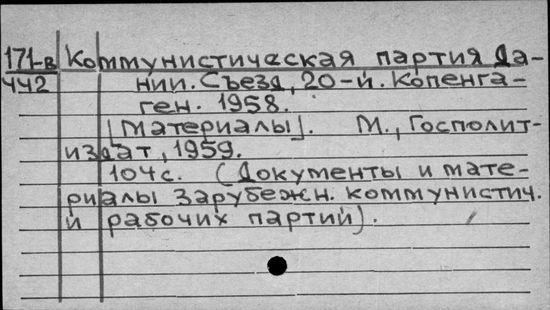 171-в Коммунистическая партия Да-
442 нии. Съезд, 20-й. Копенга-
ген. 1958.
[Материалы]. М., Госполит-
издат, 1959.
104с. (Документы и мате-
риалы зарубежн. коммунистич.
и рабочих партий).